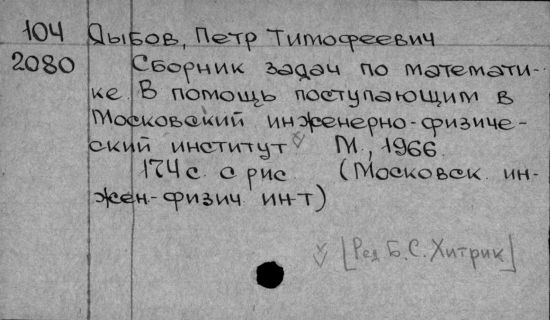 104 Дыбов, Петр Тимофеевич
2080 Сборник задач по математи-
ке. В помощь поступающим в
Московский инженерно-физиче-
ский институт М., 1966.
174 с. с рис. (Московск. ин-
жен.-физич. ин-т)
[Ред. Б. С. Хитрик]